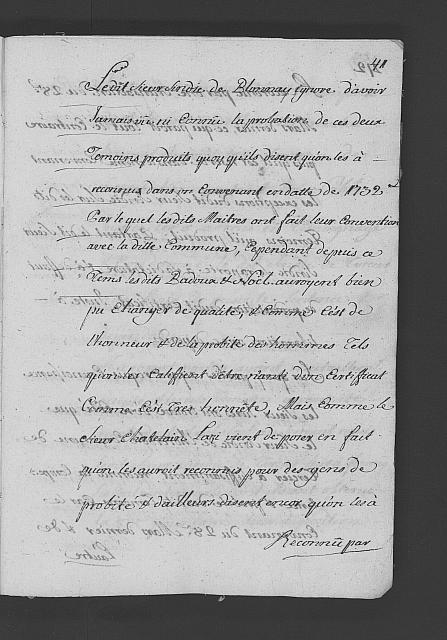 41
Ledit sieur sindic de Blonnay ignore d'avoir
Jamais vû ni Connû la probation de ces deux
Temoins produits, quoy qu'ils disent qu'on les à
reconnus dans un Convenant en datte de 1732
Par lequel lesdits Maitres ont fait leur Convention
avec la ditte Commune, Cependant depuis ce
Tems lesdits Badoux & Noël auroyent bien
pu Changer de qualité, & Comme C'est de
l'honneur & de la probité des hommes Tels
qu'on les Califfient d'être riants d'un Certificat
Comme C'est Tres honnête, Mais Comme le
sieur Chatelain vient de poser en fait
qu'on les auroit reconnus pour des gens de
probité & d'ailleurs disent encor qu'on les à
Reconnû par